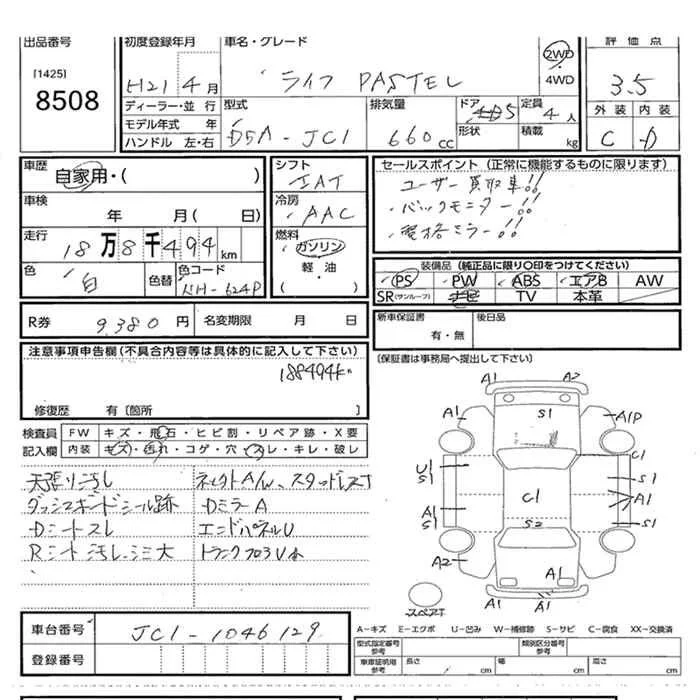 出品番号
[1425]
8508
初度登録年月
H21年4月
車名・グレード
ライフ PASTEL
2WD
4WD
評価点
3.5
外装 内装
C D
ディーラー・並行
モデル年式 年
ハンドル 左・右
型式
DBA-JC1
排気量
660cc
ドア
5
形状
定員
4人
積載
kg
車歴
自家用・( )
車検
年 月( 日)
走行
18万8千494km
色
白
色替
色コード
NH-624P
シフト
IAT
冷房
AAC
燃料
ガソリン
軽・油
( ・ )
セールスポイント(正常に機能するものに限ります)
ユーザー買取車!!
バックモニター!!
電格ミラー!!
装備品(純正品に限り○印をつけてください)
PS PW ABS エアB AW
SR(サンルーフ) ナビ TV 本革
R券
9,380円
名変期限 月 日
新車保証書
有・無
後日品
[保証書は事務局へ提出して下さい]
注意事項申告欄(不具合内容等は具体的に記入して下さい)
188494km
修復歴 有〔箇所 〕
検査員 FW キズ・飛石・ヒビ割・リペア跡・X要
記入欄 内装 キズ・汚れ・コゲ・穴・スレ・キレ・破レ
天張り汚れ
ダッシュボードシール跡
Dシートスレ
Rシート汚レ、シミ大
社外A/W、スタッドレス
DミラーA
エンドパネルU
トランクフロアU
A1 A2
A1 S1 A1P
C1
U1
S1 S1
C1 A1
A1
S1 S2 S1
A2 A1
A1 A1
スペアT
A-キズ E-エクボ U-凹み W-補修跡 S-サビ C-腐食 XX-交換済
車台番号
JC1-1046129
登録番号
型式指定番号
参考
類別区分番号
参考
車庫証明用
参考
長さ cm
幅 cm
高さ cm